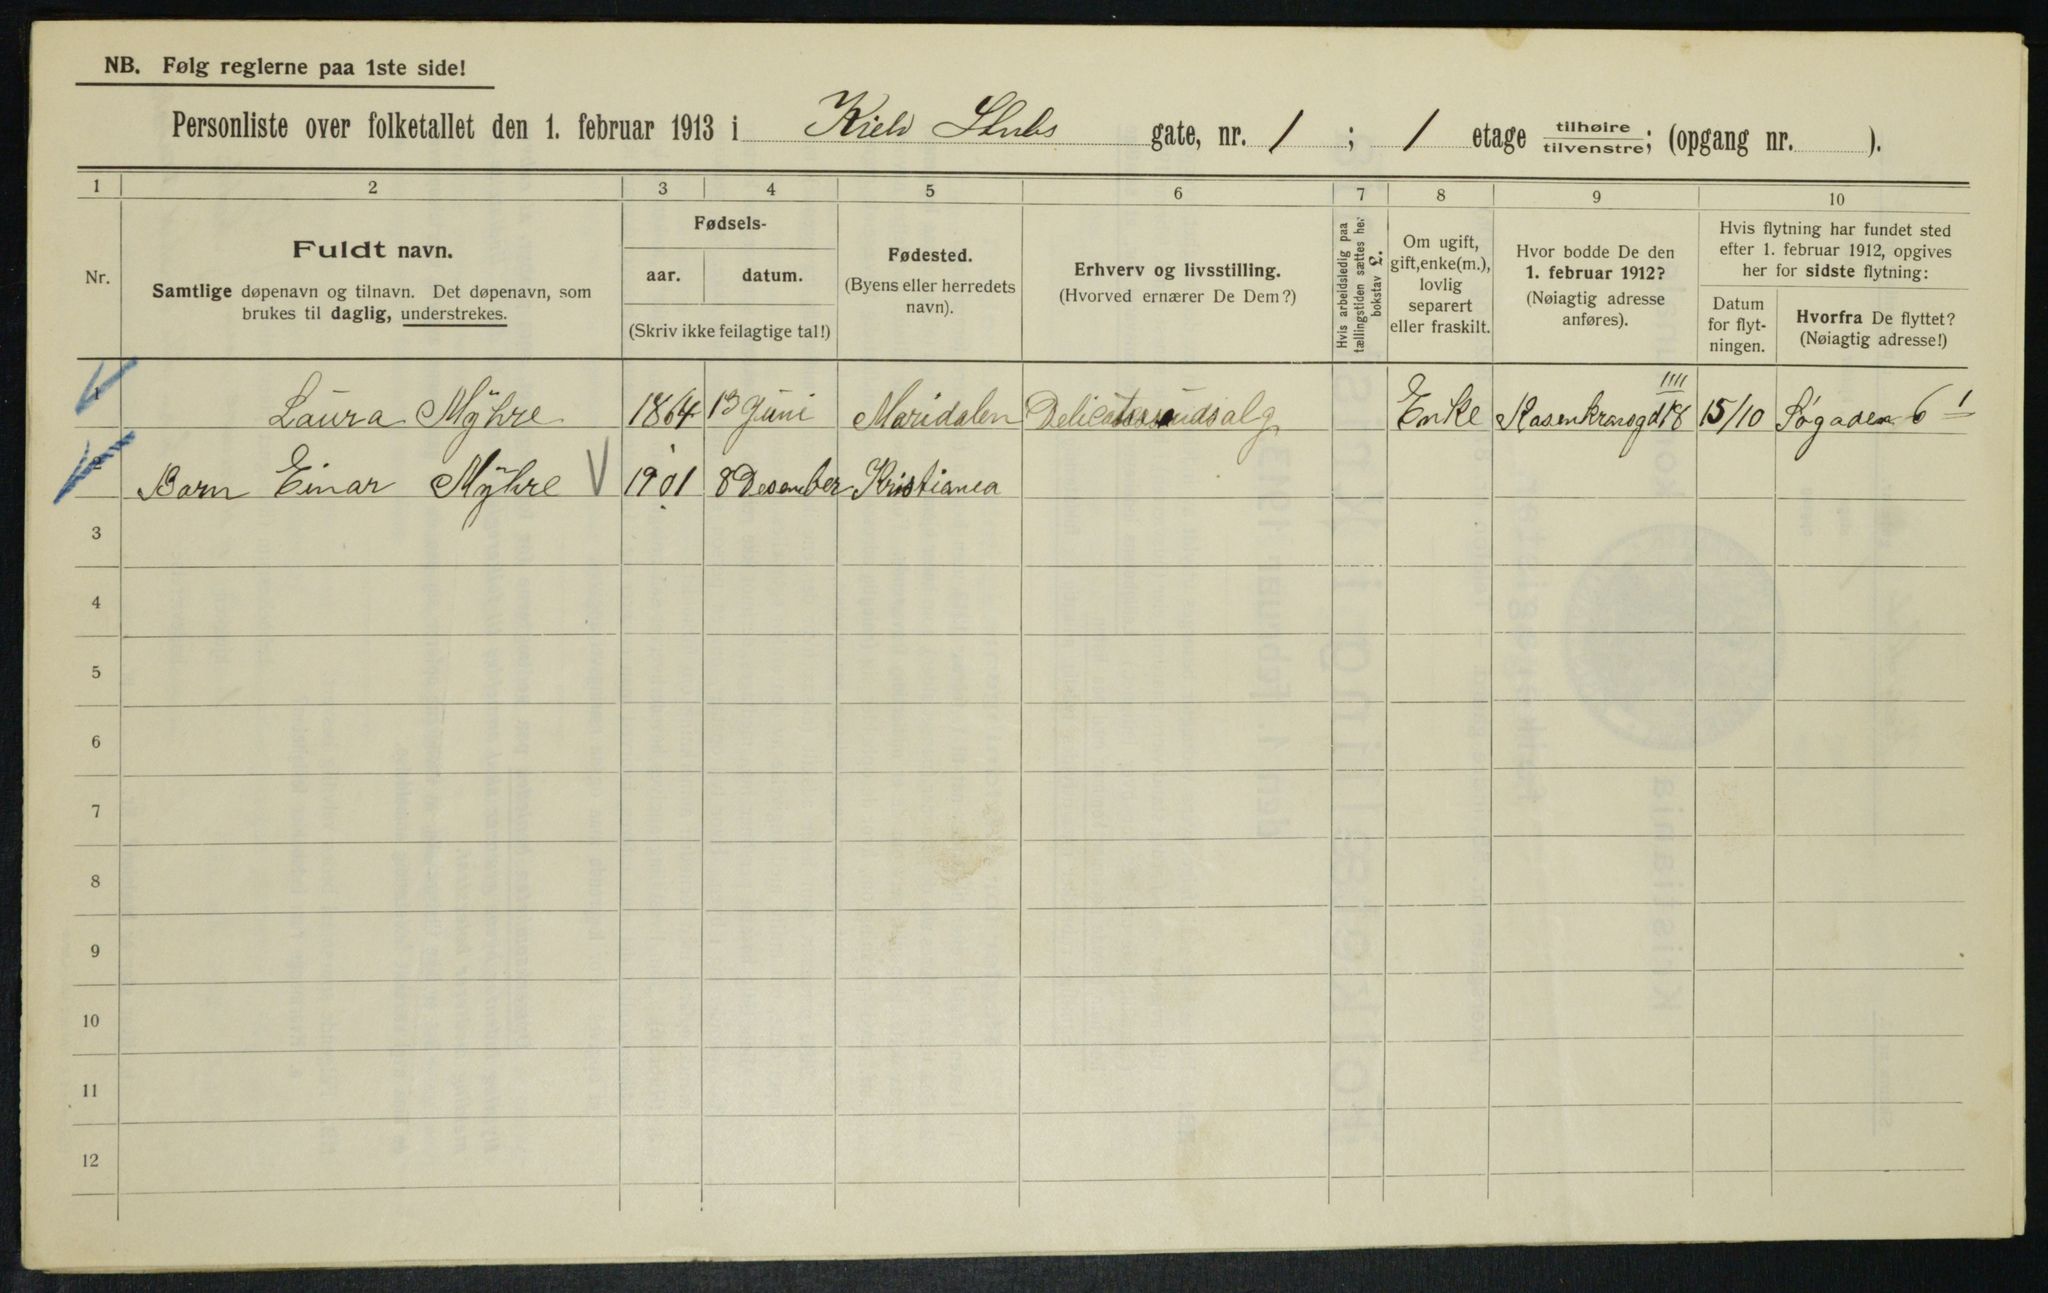 NB. Følg reglerne paa 1ste side!
Personliste over folketallet den 1. februar 1913 i Kield Stubs gate, nr. 1 ; 1 etage tilhøire tilvenstre; (opgang nr. ).
1 2 3 4 5 6 7 8 9 10
Nr.
Fuldt navn.
Samtlige døpenavn og tilnavn. Det døpenavn, som
brukes til daglig, understrekes.
Fødsels-
aar. datum.
(Skriv ikke feilagtige tal!)
Fødested.
(Byens eller herredets
navn).
Erhverv og livsstilling.
(Hvorved ernærer De Dem?)
Hvis arbeidsledig paa
tællingstiden sættes her
bokstav L.
Om ugift,
gift, enke(m.),
lovlig
separert
eller fraskilt.
Hvor bodde De den
1. februar 1912?
(Nøiagtig adresse
anføres).
Hvis flytning har fundet sted
efter 1. februar 1912, opgives
her for sidste flytning:
Datum
for flyt-
ningen.
Hvorfra De flyttet?
(Nøiagtig adresse!)
1 Laura Mÿhre 1864 13 Juni Maridalen Delicatesseudsalg Enke Rosenkransgd 18 IIII 15/10 Søgaden 6 1
2 Barn Einar Mÿhre 1901 8 Desember Kristiania
3
4
5
6
7
8
9
10
11
12